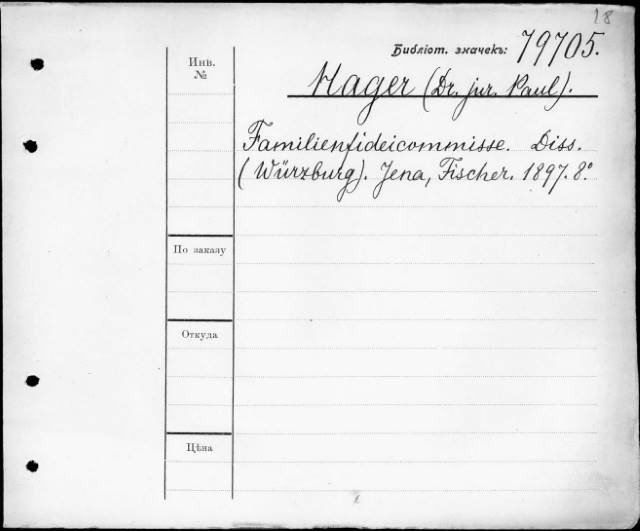 18
Библіот. значекъ: 79705.
Инв.
№
Hager (Dr. jur. Paul).
Familienfideicommisse. Diss.
(Würzburg). Jena, Fischer. 1897. 8°
По заказу
Откуда
Цѣна